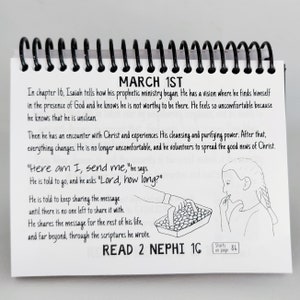 MARCH 1ST
In chapter 16, Isaiah tells how his prophetic ministry began. He has a vision where he finds himself
in the presence of God and he knows he is not worthy to be there. He feels so uncomfortable because
he knows that he is unclean.
Then he has an encounter with Christ and experiences His cleansing and purifying power. After that,
everything changes. He is no longer uncomfortable, and he volunteers to spread the good news of Christ.
"Here am I, send me," he says.
He is told to go, and he asks "Lord, how long?"
He is told to keep sharing the message
until there is no one left to share it with.
He shares the message for the rest of his life,
and far beyond, through the scriptures he wrote.
READ 2 NEPHI 16